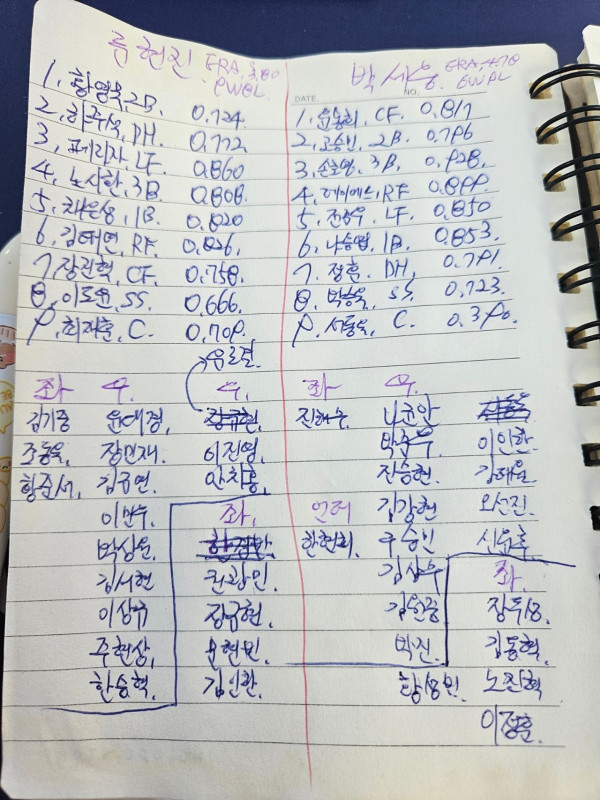 류현진 ERA.3.80 6W8L.
1. 황영묵 2B. 0.724.
2. 하주석, DH. 0.772
3. 페라자 LF. 0.860
4. 노시환, 3B 0.808.
5. 채은성, 1B. 0.820
6. 김태연, RF. 0.826.
7. 장진혁, CF. 0.758.
8. 이도윤, SS. 0.666.
9. 최재훈, C. 0.709.
유로결.
좌 우. 우.
김기중 윤대경. 장규현.
조동욱, 장민재. 이진영,
황준서, 김규연. 안치홍,
이민우. 좌.
박상원.
김서현 권광민.
이상규 장규현.
주현상, 문현빈.
한승혁. 김인환.
박세웅 ERA.4.78 6W9L
DATE. NO.
1. 윤동희, CF. 0.817
2. 고승민, 2B. 0.796
3. 손호영, 3B, 0.928.
4. 레이예스, RF 0.899.
5. 전준우, LF. 0.850
6. 나승엽, 1B. 0.853.
7. 정훈. DH, 0.791.
8. 박승욱, SS. 0.723.
9. 서동욱, C. 0.390.
좌 우.
진해수. 나균안
박준우. 이인한.
진승현. 강태율
언더 김강현 오선진.
한현희. 구승민 신윤후
김상수 좌.
김원중 장두성.
박진. 김동혁.
황성빈 노진혁
이정훈.